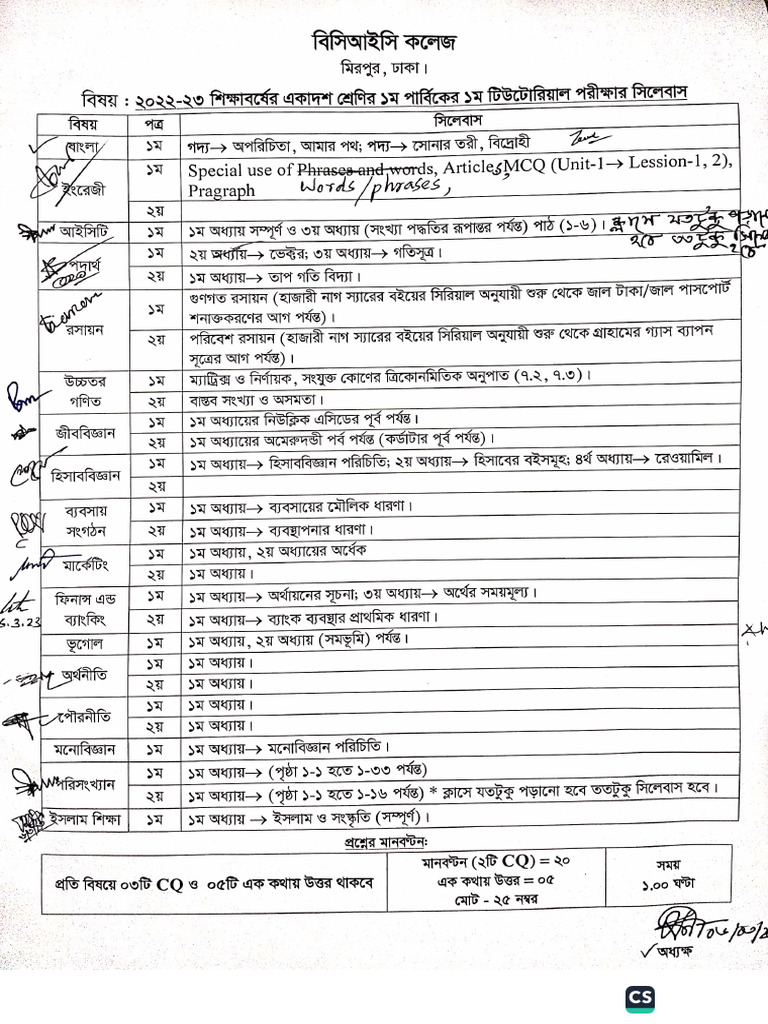 বিসিআইসি কলেজ
মিরপুর, ঢাকা।
বিষয় : ২০২২-২৩ শিক্ষাবর্ষের একাদশ শ্রেণির ১ম পার্বিকের ১ম টিউটোরিয়াল পরীক্ষার সিলেবাস
বিষয় পত্র সিলেবাস
বাংলা ১ম গদ্য→ অপরিচিতা, আমার পথ; পদ্য→ সোনার তরী, বিদ্রোহী
ইংরেজী ১ম Special use of Phrases and words, Articles, MCQ (Unit-1→ Lession-1, 2),
Pragraph words/phrases,
২য়
আইসিটি ১ম ১ম অধ্যায় সম্পূর্ণ ও ৩য় অধ্যায় (সংখ্যা পদ্ধতির রূপান্তর পর্যন্ত) পাঠ (১-৬)। ক্লাসে যতটুকু
হবে ততটুকু
পদার্থ ১ম ২য় অধ্যায়→ ভেক্টর; ৩য় অধ্যায়→ গতিসূত্র।
২য় ১ম অধ্যায়→ তাপ গতি বিদ্যা।
রসায়ন ১ম গুণগত রসায়ন (হাজারী নাগ স্যারের বইয়ের সিরিয়াল অনুযায়ী শুরু থেকে জাল টাকা/জাল পাসপোর্ট
শনাক্তকরণের আগ পর্যন্ত)।
২য় পরিবেশ রসায়ন (হাজারী নাগ স্যারের বইয়ের সিরিয়াল অনুযায়ী শুরু থেকে গ্রাহামের গ্যাস ব্যাপন
সূত্রের আগ পর্যন্ত)।
উচ্চতর গণিত ১ম ম্যাট্রিক্স ও নির্ণায়ক, সংযুক্ত কোণের ত্রিকোনমিতিক অনুপাত (৭.২, ৭.৩)।
২য় বাস্তব সংখ্যা ও অসমতা।
জীববিজ্ঞান ১ম ১ম অধ্যায়ের নিউক্লিক এসিডের পূর্ব পর্যন্ত।
২য় ১ম অধ্যায়ের অমেরুদন্ডী পর্ব পর্যন্ত (কর্ডাটার পূর্ব পর্যন্ত)।
হিসাববিজ্ঞান ১ম ১ম অধ্যায়→ হিসাববিজ্ঞান পরিচিতি; ২য় অধ্যায়→ হিসাবের বইসমূহ; ৪র্থ অধ্যায়→ রেওয়ামিল।
২য়
ব্যবসায় সংগঠন ১ম ১ম অধ্যায়→ ব্যবসায়ের মৌলিক ধারণা।
২য় ১ম অধ্যায়→ ব্যবস্থাপনার ধারণা।
মার্কেটিং ১ম ১ম অধ্যায়, ২য় অধ্যায়ের অর্ধেক
২য় ১ম অধ্যায়।
ফিনান্স এন্ড ব্যাংকিং ১ম ১ম অধ্যায়→ অর্থায়নের সূচনা; ৩য় অধ্যায়→ অর্থের সময়মূল্য।
5.3.23 ২য় ১ম অধ্যায়→ ব্যাংক ব্যবস্থার প্রাথমিক ধারণা।
ভূগোল ১ম ১ম অধ্যায়, ২য় অধ্যায় (সমভূমি) পর্যন্ত।
অর্থনীতি ১ম ১ম অধ্যায়।
২য় ১ম অধ্যায়।
পৌরনীতি ১ম ১ম অধ্যায়।
২য় ১ম অধ্যায়।
মনোবিজ্ঞান ১ম ১ম অধ্যায়→ মনোবিজ্ঞান পরিচিতি।
পরিসংখ্যান ১ম ১ম অধ্যায়→ (পৃষ্ঠা ১-১ হতে ১-৩৩ পর্যন্ত)
২য় ১ম অধ্যায়→ (পৃষ্ঠা ১-১ হতে ১-১৬ পর্যন্ত) * ক্লাসে যতটুকু পড়ানো হবে ততটুকু সিলেবাস হবে।
ইসলাম শিক্ষা ১ম ১ম অধ্যায় → ইসলাম ও সংস্কৃতি (সম্পূর্ণ)।
প্রশ্নের মানবন্টন:
প্রতি বিষয়ে ০৩টি CQ ও ০৫টি এক কথায় উত্তর থাকবে
মানবন্টন (২টি CQ) = ২০
এক কথায় উত্তর = ০৫
মোট - ২৫ নম্বর
সময়
১.০০ ঘণ্টা
অধ্যক্ষ
CS